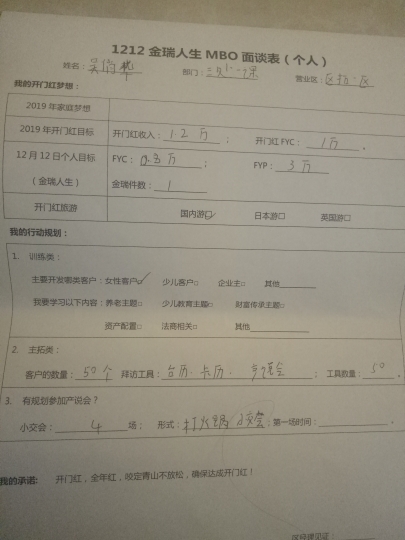 1212 金瑞人生 MBO 面谈表（个人）
姓名： 部门： 营业区：
我的开门红梦想：
2019 年家庭梦想
2019 年开门红目标 开门红收入：1.2 万； 开门红 FYC：1万。
12 月 12 日个人目标 FYC：0.3 万； FYP：3 万
（金瑞人生） 金瑞件数：1
开门红旅游 国内游☑ 日本游□ 英国游□
我的行动规划：
1. 训练类：
主要开发哪类客户：女性客户☑ 少儿客户□ 企业主□ 其他
我要学习以下内容：养老主题□ 少儿教育主题□ 财富传承主题□
资产配置□ 法商相关□ 其他
2. 主拓类：
客户的数量：50个 拜访工具：台历、卡历、 ；工具数量：50。
3. 有规划参加产说会？
小交会：4 场； 形式：打火锅 ；第一场时间：。
我的承诺： 开门红，全年红，咬定青山不放松，确保达成开门红！